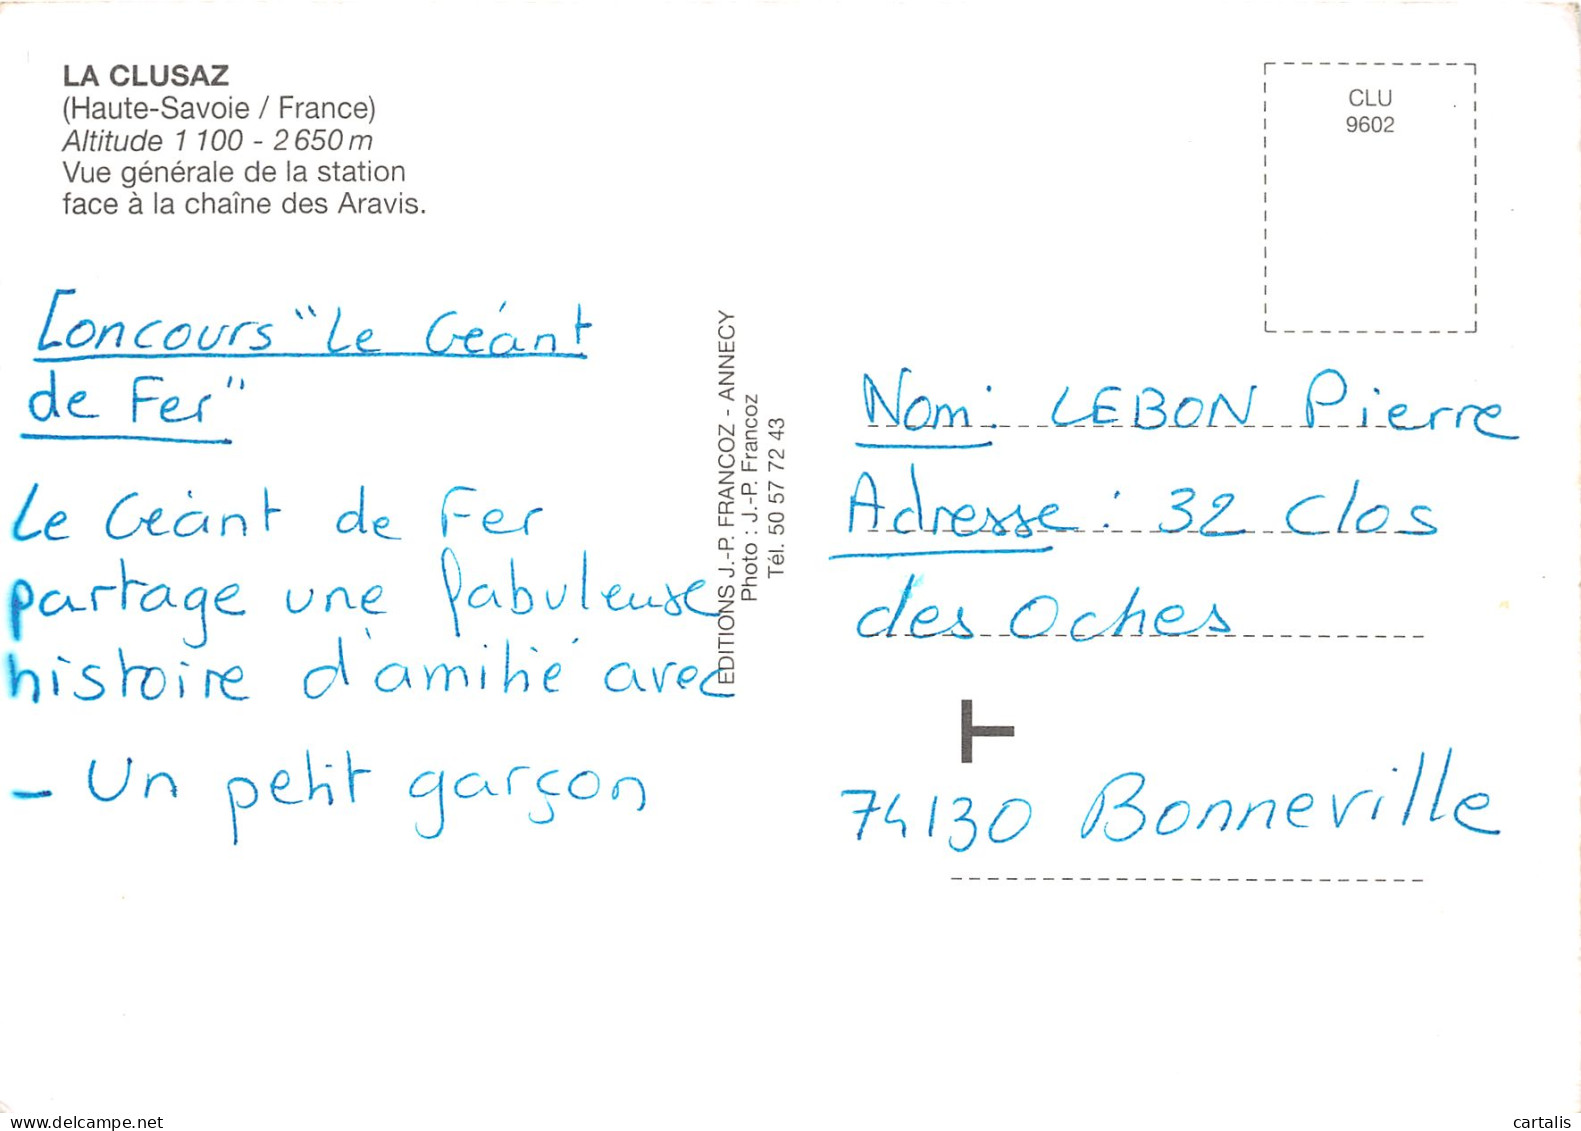 LA CLUSAZ
(Haute-Savoie / France)
Altitude 1 100 - 2 650 m
Vue générale de la station
face à la chaîne des Aravis.
CLU
9602
Concours "Le Géant
de Fer"
Le Géant de Fer
partage une fabuleuse
histoire d'amitié avec
- Un petit garçon
EDITIONS J.-P. FRANCOZ - ANNECY
Photo : J.-P. Francoz
Tél. 50 57 72 43
Nom: LEBON Pierre
Adresse : 32 Clos
des Oches
74130 Bonneville
delcampe.net
cartalis